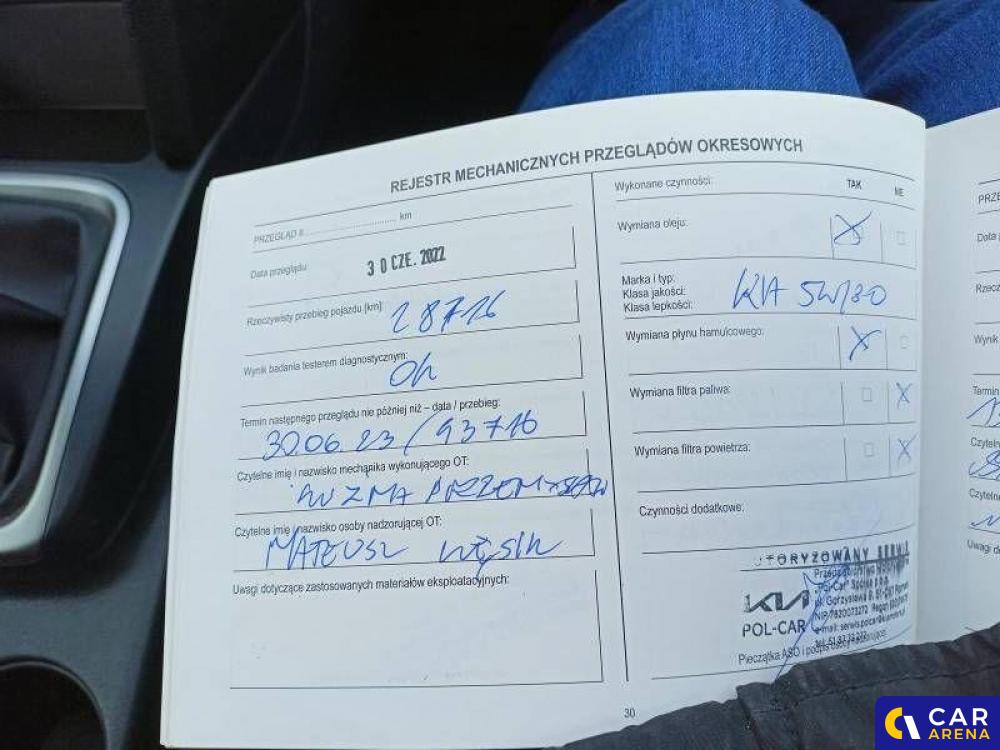 REJESTR MECHANICZNYCH PRZEGLĄDÓW OKRESOWYCH
PRZEGLĄD II ........................ km
Data przeglądu:
30 CZE. 2022
Rzeczywisty przebieg pojazdu [km]:
28716
Wynik badania testerem diagnostycznym:
Ok
Termin następnego przeglądu nie później niż – data / przebieg:
30.06.23 / 43716
Czytelne imię i nazwisko mechanika wykonującego OT:
KUZMA PRZEMYSŁAW
Czytelne imię i nazwisko osoby nadzorującej OT:
MATEUSZ
Uwagi dotyczące zastosowanych materiałów eksploatacyjnych:
Wykonane czynności:
TAK NIE
Wymiana oleju:
Marka i typ:
Klasa jakości:
Klasa lepkości:
KIA 5W/30
Wymiana płynu hamulcowego:
Wymiana filtra paliwa:
Wymiana filtra powietrza:
Czynności dodatkowe:
AUTORYZOWANY SERWIS
KIA
POL-CAR
"Pol-Car" Spółka z o.o.
NIP 7820073272
Pieczątka ASO i podpis osoby
30
PRZE
Data
Rzecz
Wynik
Termin
Czytel
Czytel
Uwagi d
CAR
ARENA